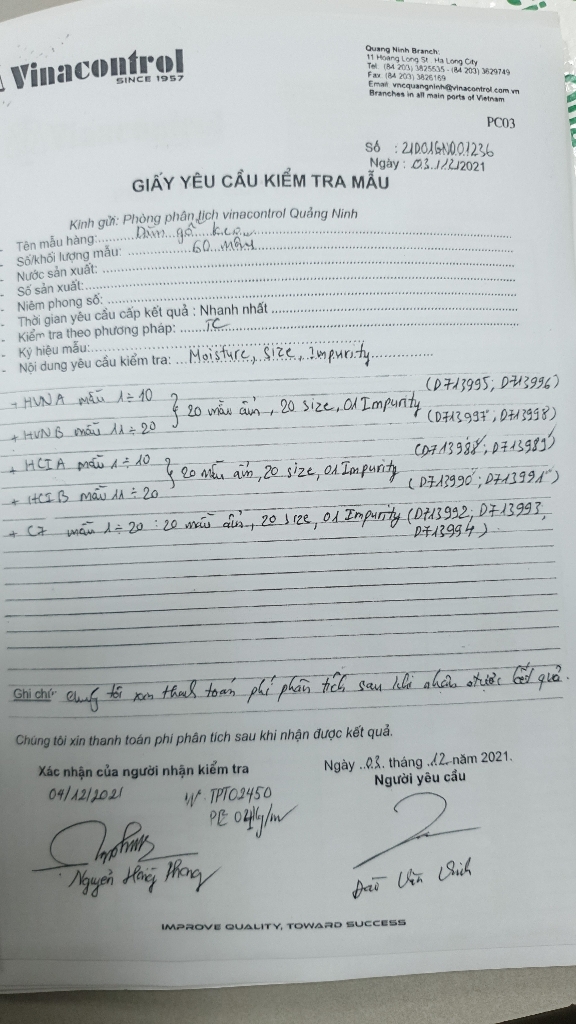 Vinacontrol
SINCE 1957
Quang Ninh Branch:
11 Hoang Long St. Ha Long City
Tel. (84 203) 3825535 - (84 203) 3629749
Fax (84 203) 3826169
Email: vncquangninh@vinacontrol.com.vn
Branches in all main ports of Vietnam
PC03
Số : 21D01GN001236
Ngày : 03.12/2021
GIẤY YÊU CẦU KIỂM TRA MẪU
Kính gửi: Phòng phân tích vinacontrol Quảng Ninh
- Tên mẫu hàng: Dăm gỗ keo
- Số/khối lượng mẫu: 60 mẫu
- Nước sản xuất:
- Số sản xuất:
- Niêm phong số:
- Thời gian yêu cầu cấp kết quả : Nhanh nhất
- Kiểm tra theo phương pháp: TC
- Ký hiệu mẫu:
- Nội dung yêu cầu kiểm tra: Moisture, Size, Impurity
+ HVNA mẫu 1÷10 (D713995; D713996)
} 20 mẫu ẩm, 20 size, 01 Impurity
+ HVNB mẫu 11÷20 (D713997; D713998)
+ HCIA mẫu 1÷10 (D713988; D713989)
} 20 mẫu ẩm, 20 size, 01 Impurity
+ HCIB mẫu 11÷20 (D713990; D713991)
+ C7 mẫu 1÷20 : 20 mẫu ẩm, 20 size, 01 Impurity (D713992; D713993,
D713994)
Ghi chú: chúng tôi xin thanh toán phí phân tích sau khi nhận được kết quả.
Chúng tôi xin thanh toán phí phân tích sau khi nhận được kết quả.
Xác nhận của người nhận kiểm tra
04/12/2021
TPT02450
Nguyễn Hồng Phong
Ngày 03. tháng 12 năm 2021.
Người yêu cầu
Đào Văn Vinh
IMPROVE QUALITY, TOWARD SUCCESS